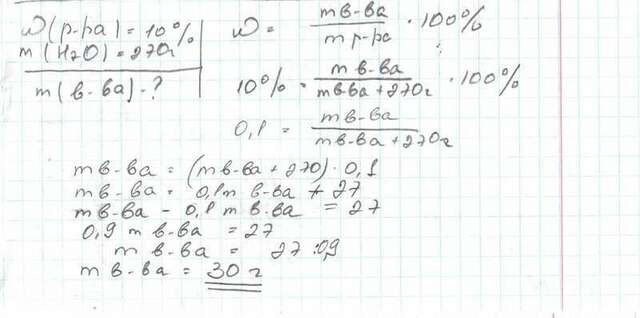 ω(р-ра) = 10%
m(H2O) = 270г
m(в-ва) - ?
ω = m в-ва / m р-ра · 100%
10% = m в-ва / m в-ва + 270г · 100%
0,1 = m в-ва / m в-ва + 270г
m в-ва = (m в-ва + 270) · 0,1
m в-ва = 0,1 m в-ва + 27
m в-ва - 0,1 m в-ва = 27
0,9 m в-ва = 27
m в-ва = 27 : 0,9
m в-ва = 30 г